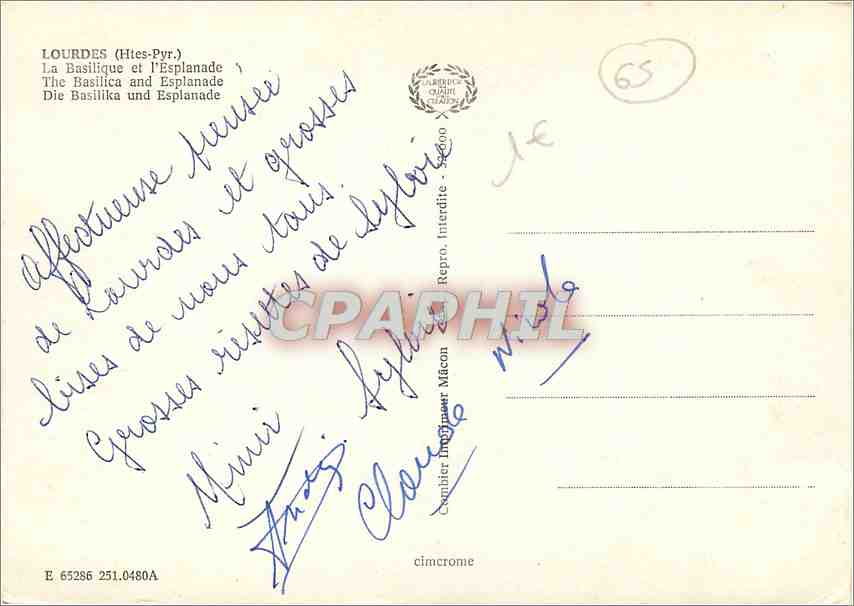 LOURDES (Htes-Pyr.)
La Basilique et l'Esplanade
The Basilica and Esplanade
Die Basilika und Esplanade
LAURIER D'OR
DE
QUALITÉ
CRÉATION
65
1€
Affectueuse pensée
de Lourdes et grosses
bises de nous tous.
Grosses risettes de Sylvie
Mimi Sylvie Nicole
André Claude
CPAPHIL
Combier Imprimeur Mâcon Repro. Interdite
cimcrome
E 65286 251.0480A